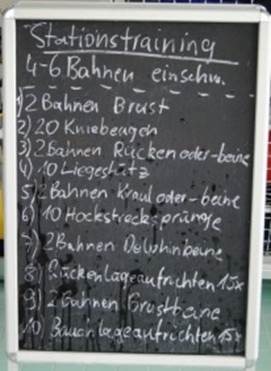 Stationstraining
4-6 Bahnen einschw.
1) 2 Bahnen Brust
2) 20 Kniebeugen
3) 2 Bahnen Rücken oder -beine
4) 10 Liegestütz
5) 2 Bahnen Kraul oder -beine
6) 10 Hockstrecksprünge
7) 2 Bahnen Delphinbeine
8) Rückenlageaufrichten 15x
9) 2 Bahnen Brustbeine
10) Bauchlageaufrichten 15x